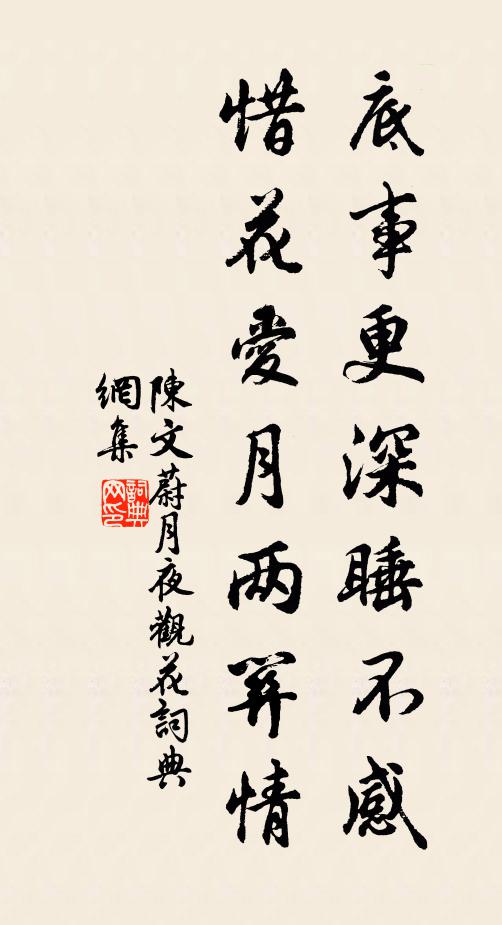 底事更深睡不感
惜花愛月两笄情
陳文蔚月夜觀花詞典
網集
詞典
网印